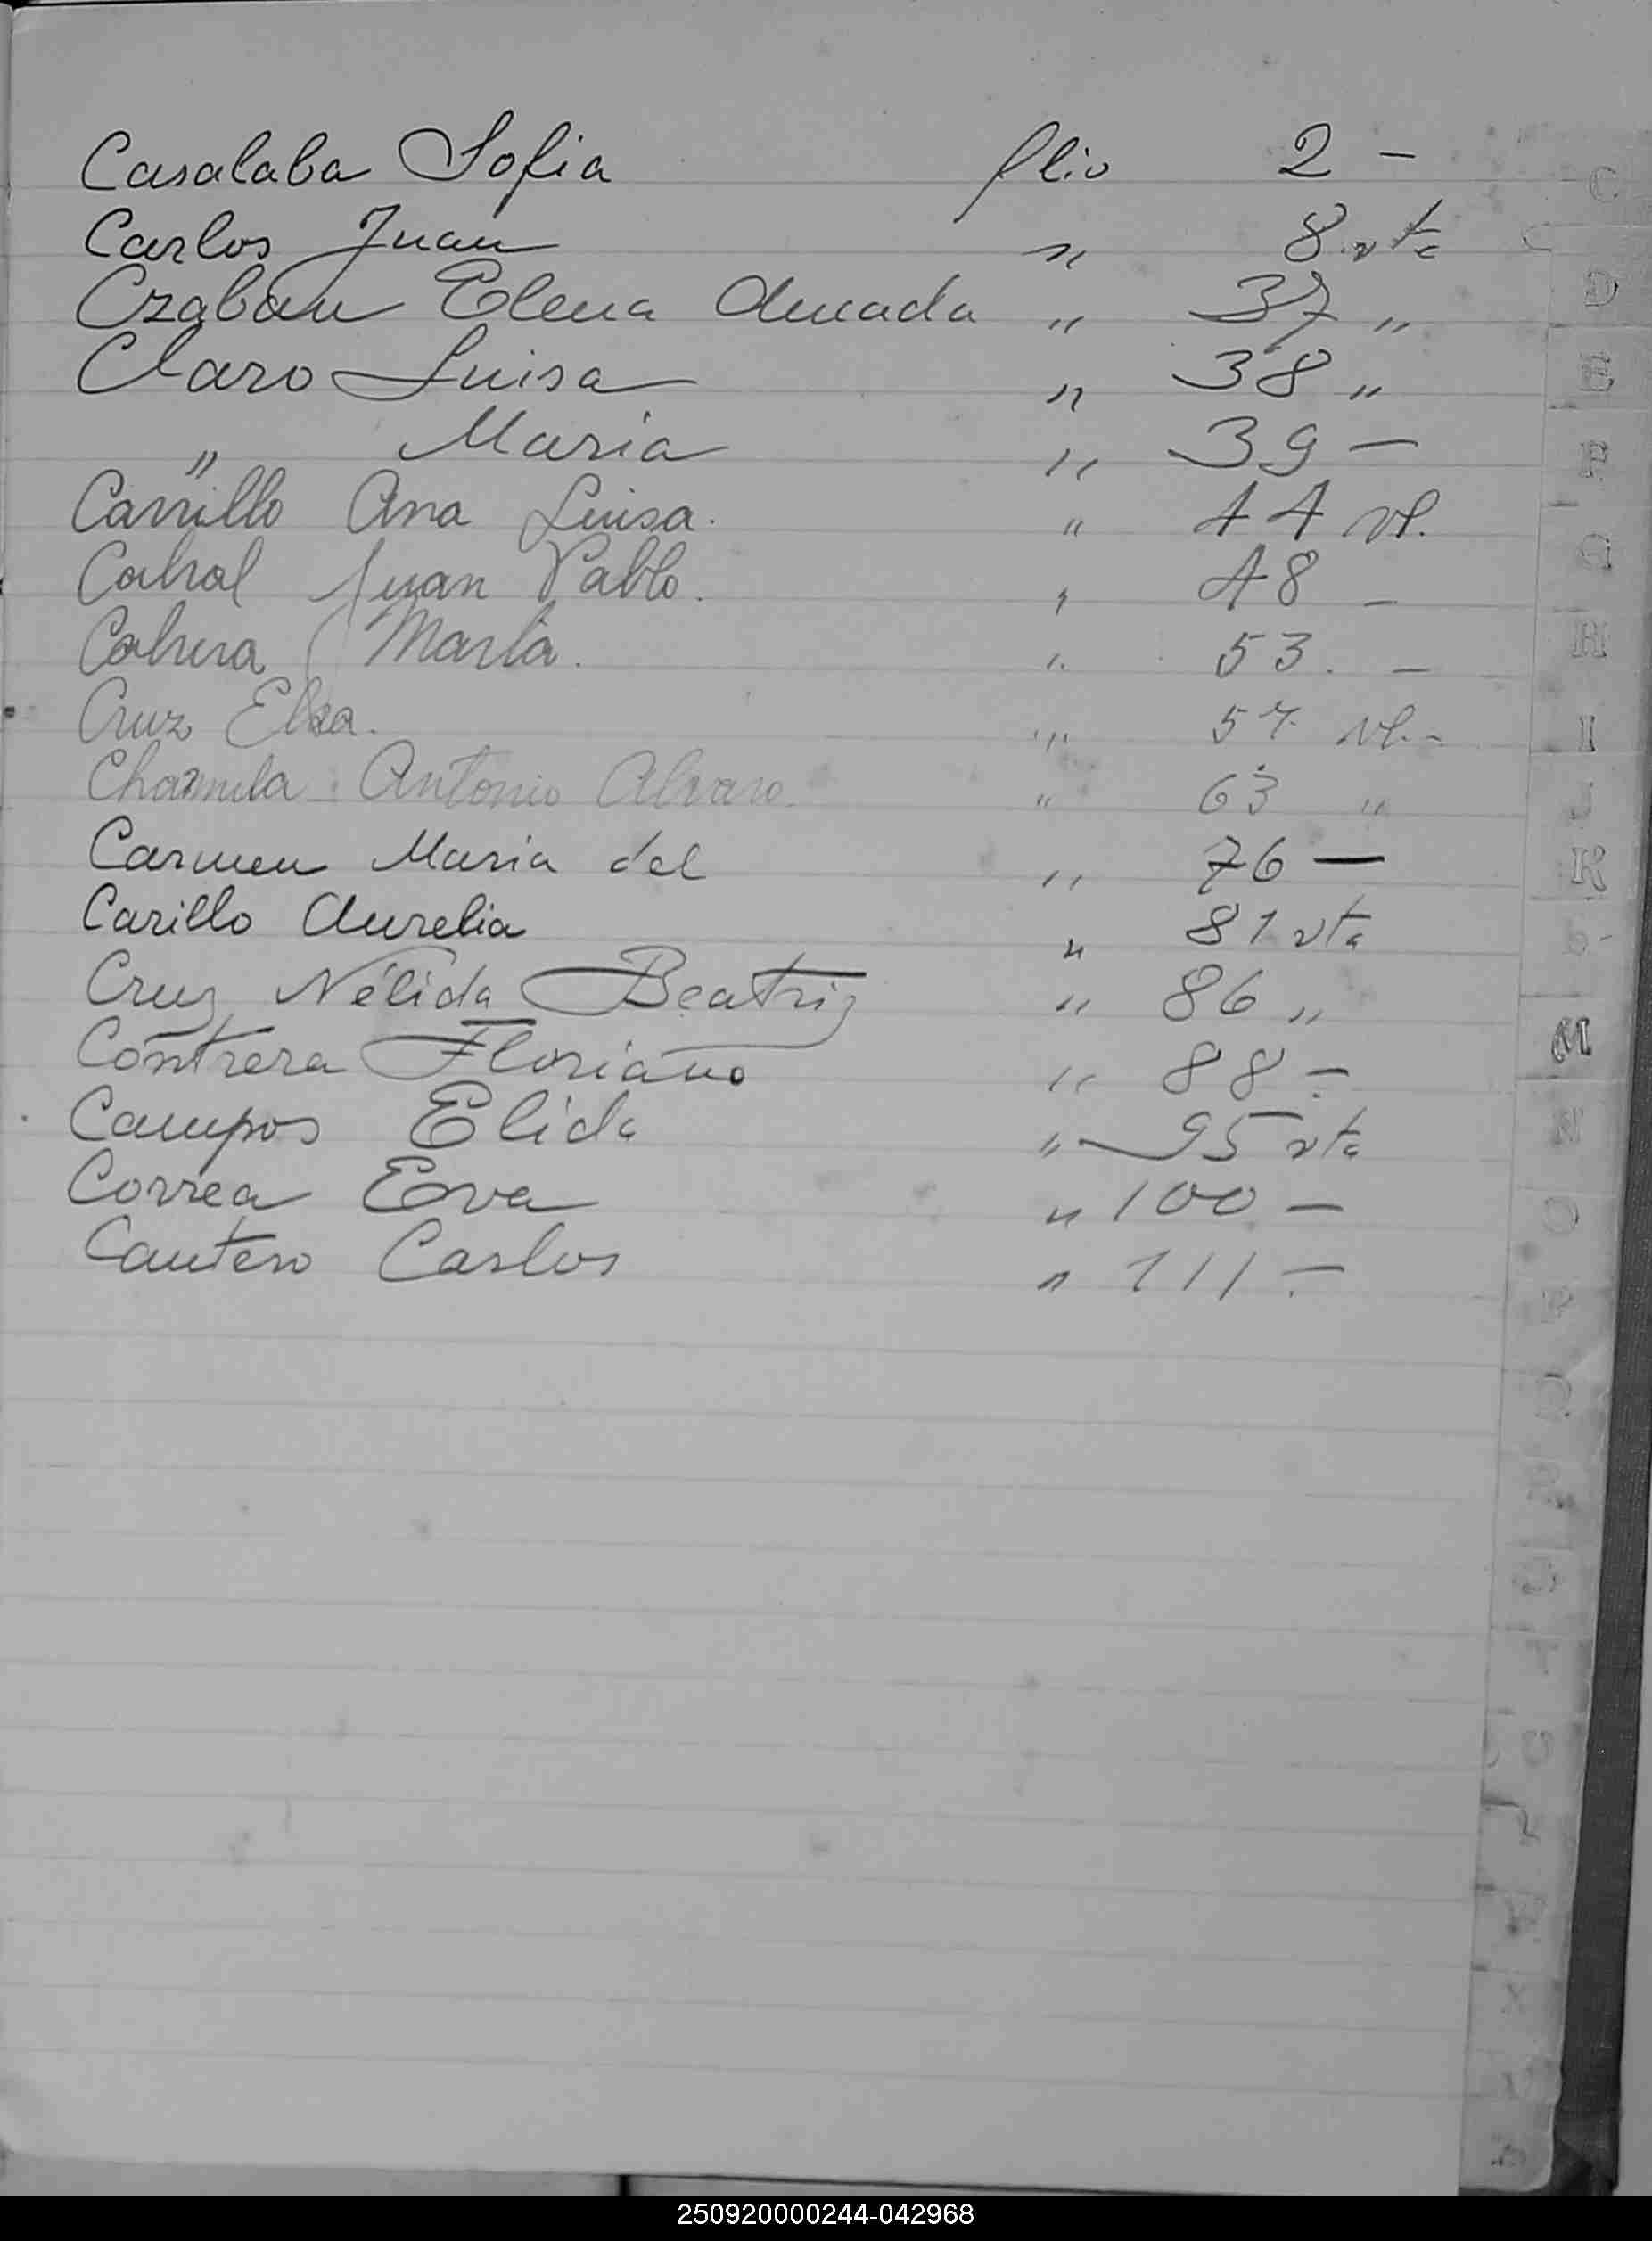 Casalaba Sofia flio 2 -
Carlos Juan " 8 vta
Czaban Elena Amada " 37 "
Claro Luisa " 38 "
" Maria " 39 -
Carrillo Ana Luisa. " 44 vt.
Cabral Juan Pablo. " 48 -
Cabrera Marta. " 53. -
Cruz Elsa. " 57 vt. -
Antonio Alvaro " 63 "
Carmen Maria del " 76 -
Carillo Aurelia " 81 vta
Cruz Nélida Beatriz " 86 "
Contrera Floriano " 88 -
Campos Elida " 95 vta
Correa Eva " 100 -
Cantero Carlos " 111 -
C
D
E
F
G
H
I
J
K
M
N
O
P
Q
250920000244-042968